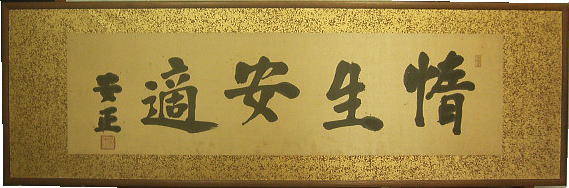 情生安適
安正